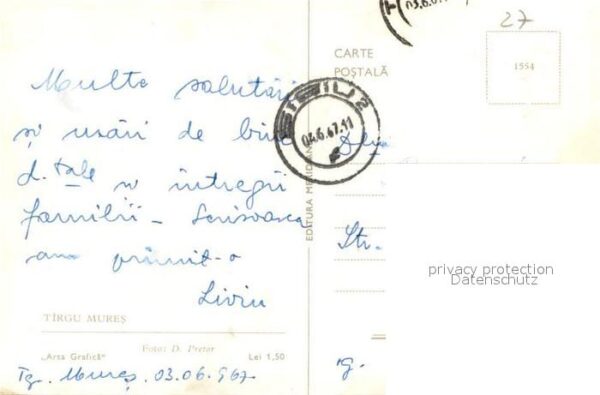 27
03.6.6
CARTE
POȘTALĂ
1554
Multe salutări
și urări de bine
d-tale și întregii
familii - Scrisoarea
am primit-o
Liviu
SIBIU 2
04.6.67.11
EDITURA MERIDIANE
Str.
privacy protection
Datenschutz
TÎRGU MUREȘ
Foto: D. Pretor
„Arta Grafică” Lei 1,50
Tg. Mureș, 03.06.967